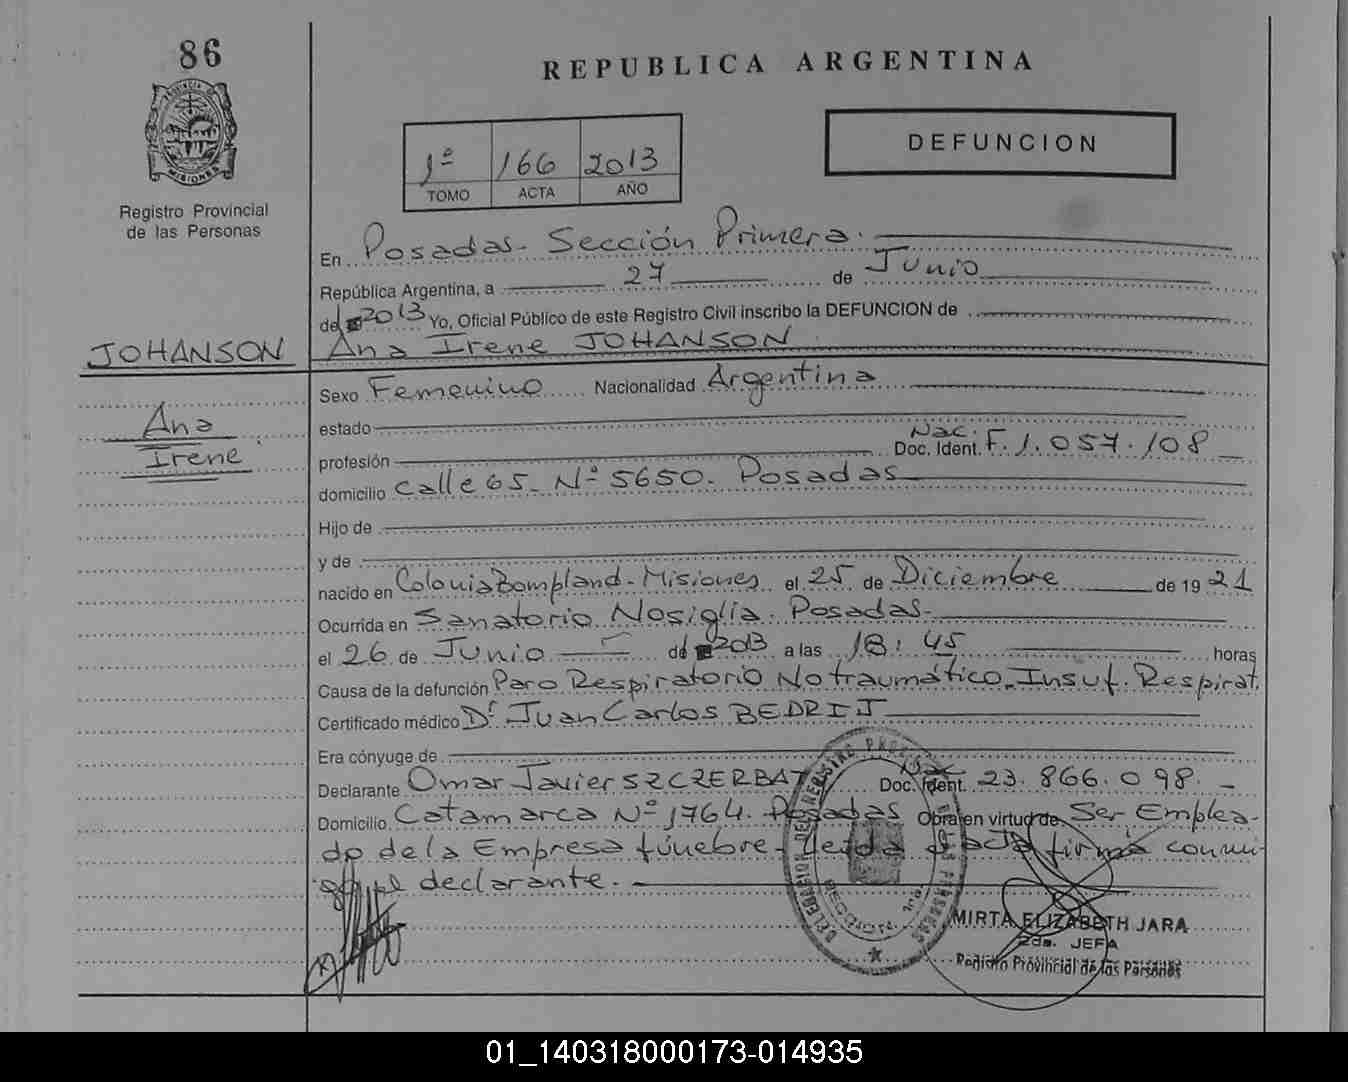 86
REPUBLICA ARGENTINA
PROVINCIA DE
MISIONES
Registro Provincial
de las Personas
1º 166 2013
TOMO ACTA AÑO
DEFUNCION
En Posadas- Sección Primera.
República Argentina, a 27 de Junio
del 2013 Yo, Oficial Público de este Registro Civil inscribo la DEFUNCION de
JOHANSON Ana Irene JOHANSON
Sexo Femenino Nacionalidad Argentina
Ana
Irene
estado
profesión Doc. Ident. Nac. F. 1.057.108
domicilio calle 65- Nº 5650. Posadas
Hijo de
y de
nacido en Colonia Bompland- Misiones el 25 de Diciembre de 1921
Ocurrida en Sanatorio Nosiglia. Posadas-
el 26 de Junio del 2013 a las 18:45 horas
Causa de la defunción Paro Respiratorio No traumático-Insuf. Respirat.
Certificado médico Dr. Juan Carlos BEDRIJ
Era cónyuge de
Declarante Omar Javier SZCZERBAT Doc. Ident. Nac 23.866.098.-
Domicilio Catamarca Nº 1764. Posadas Obra en virtud de Ser Emplea-
do de la Empresa fúnebre- Leida el acta firma conmi-
go el declarante.-
DELEGACION DEL REGISTRO PROVINCIAL DE LAS PERSONAS
MIRTA ELIZABETH JARA
2da. JEFA
Registro Provincial de las Personas
01_140318000173-014935